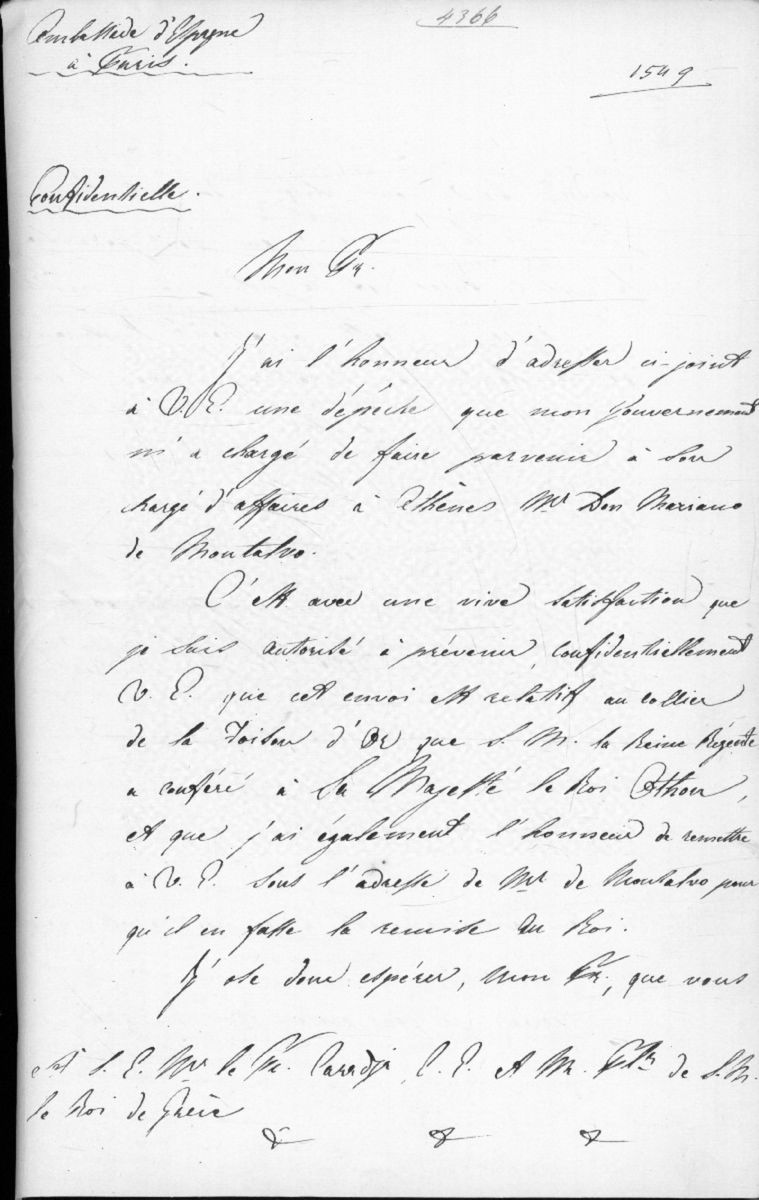 4366
Ambassade d'Espagne
à Paris.
1549
Confidentielle.
Mon Pr.
J'ai l'honneur d'adresser ci-joint
à V. E. une dépêche que mon Gouvernement
m'a chargé de faire parvenir à son
chargé d'affaires à Athènes Mr Don Mariano
de Montalvo.
C'est avec une vive satisfaction que
je suis autorisé à prévenir confidentiellement
V. E. que cet envoi est relatif au collier
de la Toison d'Or que S. M. la Reine Régente
a conféré à Sa Majesté le Roi Othon,
et que j'ai également l'honneur de remettre
à V. E. sous l'adresse de Mr de Montalvo pour
qu'il en fasse la remise au Roi.
J'ose donc espérer, mon Pr., que vous
S. E. Mr le Pr. Caradja, E. E. et M. de S. M.
le Roi de Grèce